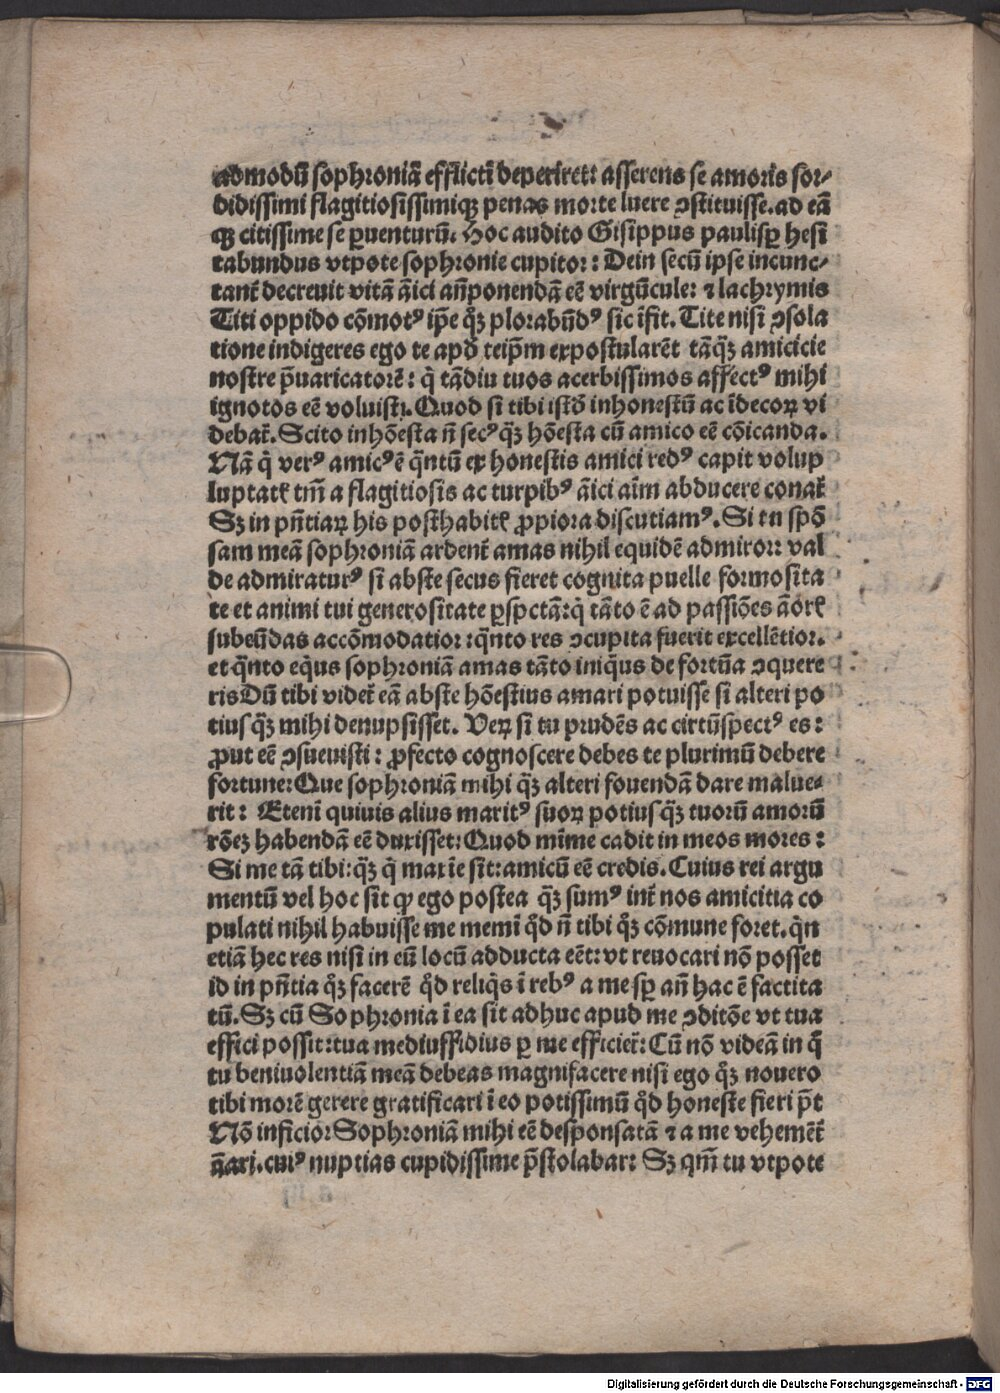 admodū sophroniā efflictī deperiret: asserens se amoris sor-
didissimi flagitiosissimiqꝫ penas morte luere ꝯstituisse. ad eā
qꝫ citissime se ꝑuenturū. Hoc audito Gisippus paulisꝑ hesi
tabundus vtpote sophronie cupitor: Dein secū ipse incunc-
tanť decreuit vitā āici an̄ponendā eē virgūcule: ⁊ lachrymis
Titi oppido cōmotꝰ ip̄e qͦꝫ plorabūdꝰ sic īfit. Tite nisi ꝯsola
tione indigeres ego te apđ teip̄m expostularēt tāqͣꝫ amicicie
nostre p̄uaricatorē: q̇ tādiu tuos acerbissimos affectꝰ mihi
ignotos eē voluisti. Quod si tibi istđ inhonestū ac īdecoꝝ vi
debať. Scito inhōesta n̄ secꝰ qͣꝫ hōesta cū amico eē cōicanda.
Nā q̇ verꝰ amicꝰ ē qͣntū ex honestis amici redꝰ capit volup
luptatꝭ tm̄ a flagitiosis ac turpibꝰ āici aīm abducere conať
Sꝫ in pn̄tiaꝝ his posthabitꝭ ꝓpiora discutiamꝰ. Si tu spō
sam meā sophroniā ardenť amas nihil equidē admiror: val
de admiraturꝰ si abste secus fieret cognita puelle formosita
te et animi tui generositate ꝑspctā: q̇ tāto ē ad passiōes āorꝭ
subeūdas accōmodatior: qͣnto res ꝯcupita fuerit excellētior.
et qͣnto eqͥus sophroniā amas tāto iniqͥus de fortūa ꝯquere
ris Dū tibi videť eā abste hōestius amari potuisse si alteri po
tius qͣꝫ mihi denupsisset. Veꝝ si tu prudēs ac cirtūspectꝰ es:
ꝓut eē ꝯsueuisti: ꝓfecto cognoscere debes te plurimū debere
fortune: Que sophroniā mihi qͣꝫ alteri fouendā dare malue-
rit: Etenī quiuis alius maritꝰ suoꝝ potius qͣꝫ tuorū amorū
rōeꝫ habendā eē duxisset: Quod mīme cadit in meos mores:
Si me tā tibi: qͣꝫ q̇ maxīe sit: amicū eē credis. Cuius rei argu
mentū vel hoc sit ꝙ ego postea qͣꝫ sumꝰ inť nos amicitia co
pulati nihil habuisse me memī qͦđ n̄ tibi qͦꝫ cōmune foret. qͥn
etiā hec res nisi in eū locū adducta eēt: vt reuocari nō posset
id in pn̄tia qͦꝫ facerē qͦđ reliqͥs ī rebꝰ a me sꝑ an̄ hac ē factita
tū. Sꝫ cū Sophronia ī ea sit adhuc apud me ꝯditōe vt tua
effici possit: tua mediuffidius ꝑ me efficieť: Cū nō videā in qͦ
tu beniuolentiā meā debeas magnifacere nisi ego qͦꝫ nouero
tibi morē gerere gratificari ī eo potissimū qͦđ honeste fieri p̄t
Nō inficior Sophroniā mihi eē desponsatā ⁊ a me vehemēť
āari. cuiꝰ nuptias cupidissime p̄stolabar: Sꝫ qm̄ tu vtpote
Digitalisierung gefördert durch die Deutsche Forschungsgemeinschaft - DFG